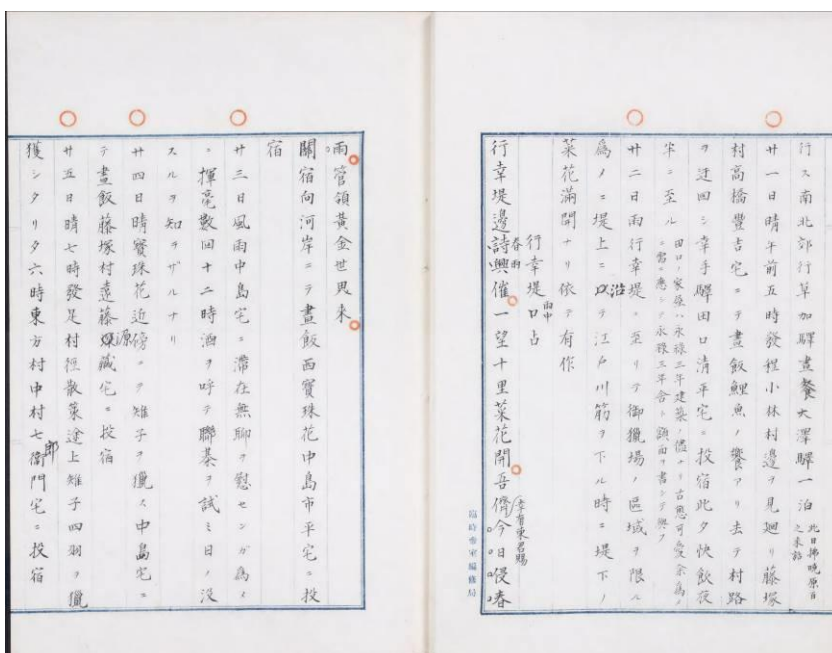 行ス南北郊行草加驛晝餐大澤驛一泊此日拂曉原自之來訪
廿一日晴午前五時發程小林村邊ヲ見廻リ藤塚
村高橋豐吉宅ニテ晝飯鯉魚ノ饗アリ去テ村路
ヲ迂回シ幸手驛田口清平宅ニ投宿此夕快飲夜
半ニ至ル
田口ノ家屋ハ永祿三年建築ノ儘ナリ古色可愛余爲ノ
ニ需ニ應シテ永祿三年舍ト額面ヲ書シテ與フ
廿二日雨行幸堤ニ至リテ御獵場ノ區域ヲ限ル
為ノニ堤上ニ沿ヲ江戶川筋ヲ下ル時ニ堤下ノ
菜花滿開ナリ依テ有作
行幸堤雨中口占
春雨
行幸堤邊詩興催一望十里菜花開吾儕今日侵春
幸有東君賜
臨時帝室編修局
雨管領黃金世界來
關宿向河岸ニテ晝飯西寶珠花中島市平宅ニ投
宿
廿三日風雨中島宅ニ滯在無聊ヲ慰センガ為メ
ニ揮毫數回十二時酒ヲ呼テ聯碁ヲ試ミ日ノ沒
スルヲ知ラザルナリ
廿四日晴寶珠花近傍ニテ雉子ヲ獵ス中島宅ニ
テ晝飯藤塚村遠藤源藏宅ニ投宿
廿五日晴七時發足村徑散策途上雉子四羽ヲ獵
獲シタリタ六時東方村中村七郎衛門宅ニ投宿